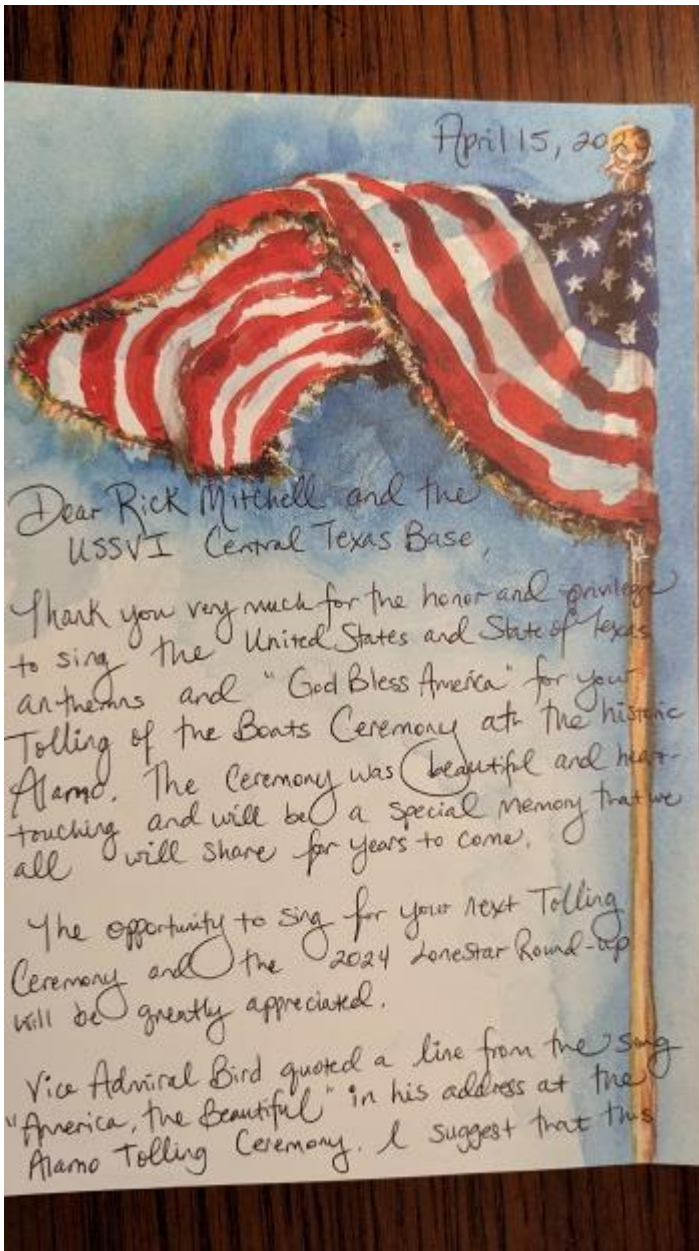 April 15, 202
Dear Rick Mitchell and the
USSVI Central Texas Base,
Thank you very much for the honor and privilege
to sing the United States and State of Texas
anthems and "God Bless America" for your
Tolling of the Boats Ceremony at the historic
Alamo. The Ceremony was beautiful and heart-
touching and will be a special memory that we
all will share for years to come.
The opportunity to sing for your next Tolling
Ceremony and the 2024 LoneStar Round-up
will be greatly appreciated.
Vice Admiral Bird quoted a line from the song
"America, the Beautiful" in his address at the
Alamo Tolling Ceremony. I suggest that this